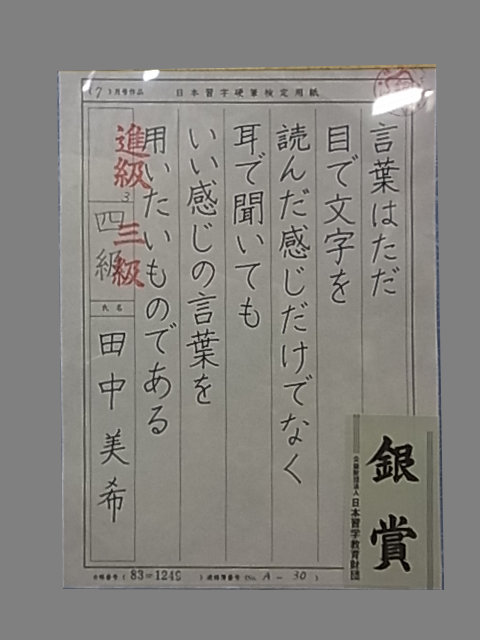 (7)月号作品 日本習字硬筆検定用紙
言葉はただ
目で文字を
読んだ感じだけでなく
耳で聞いても
いい感じの言葉を
用いたいものである
進級
三級
四級
氏名
田中美希
銀賞
公益財団法人 日本習字教育財団
会員番号(83=1249)成績簿番号(No. A-30)